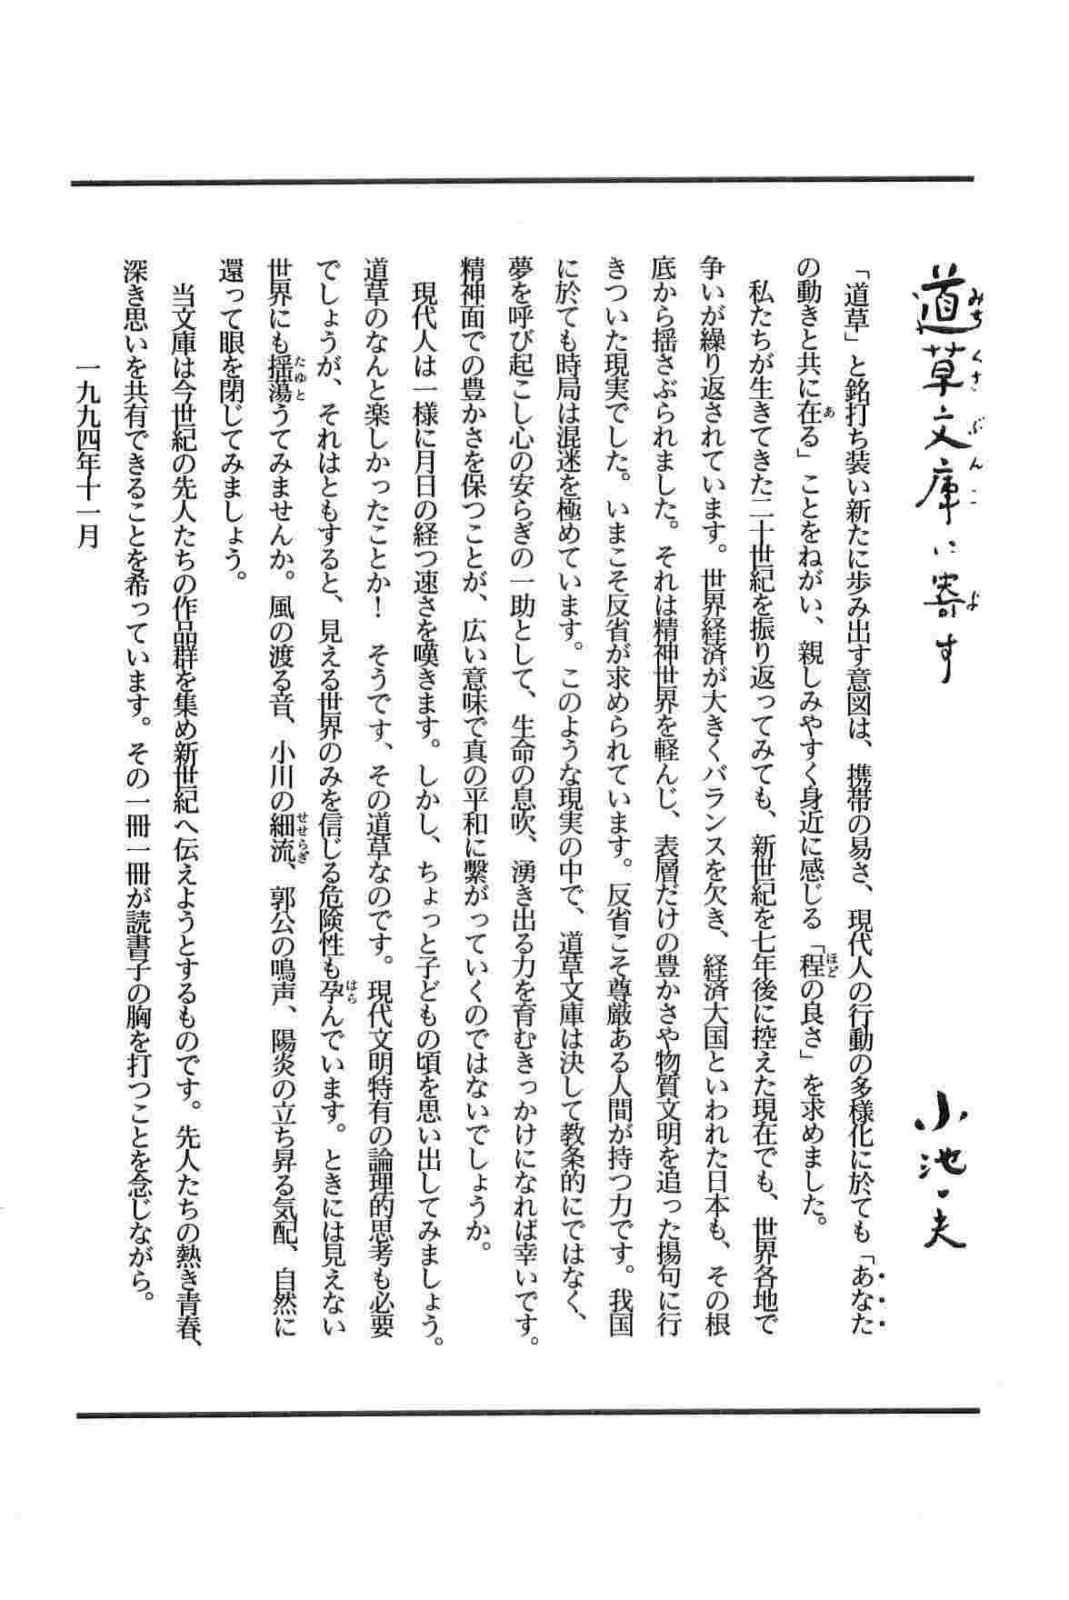 道草文庫に寄す
みちくさぶんこ よ
小池一夫
「道草」と銘打ち装い新たに歩み出す意図は、携帯の易さ、現代人の行動の多様化に於ても「あなた
の動きと共に在る」ことをねがい、親しみやすく身近に感じる「程の良さ」を求めました。
あ
ほど
私たちが生きてきた二十世紀を振り返ってみても、新世紀を七年後に控えた現在でも、世界各地で
争いが繰り返されています。世界経済が大きくバランスを欠き、経済大国といわれた日本も、その根
底から揺さぶられました。それは精神世界を軽んじ、表層だけの豊かさや物質文明を追った揚句に行
きついた現実でした。いまこそ反省が求められています。反省こそ尊厳ある人間が持つ力です。我国
に於ても時局は混迷を極めています。このような現実の中で、道草文庫は決して教条的にではなく、
夢を呼び起こし心の安らぎの一助として、生命の息吹、湧き出る力を育むきっかけになれば幸いです。
精神面での豊かさを保つことが、広い意味で真の平和に繋がっていくのではないでしょうか。
現代人は一様に月日の経つ速さを嘆きます。しかし、ちょっと子どもの頃を思い出してみましょう。
道草のなんと楽しかったことか！　そうです、その道草なのです。現代文明特有の論理的思考も必要
でしょうが、それはともすると、見える世界のみを信じる危険性も孕んでいます。ときには見えない
はら
世界にも揺蕩うてみませんか。風の渡る音、小川の細流、郭公の鳴声、陽炎の立ち昇る気配、自然に
たゆと
せせらぎ
還って眼を閉じてみましょう。
当文庫は今世紀の先人たちの作品群を集め新世紀へ伝えようとするものです。先人たちの熱き青春、
深き思いを共有できることを希っています。その一冊一冊が読書子の胸を打つことを念じながら。
一九九四年十一月